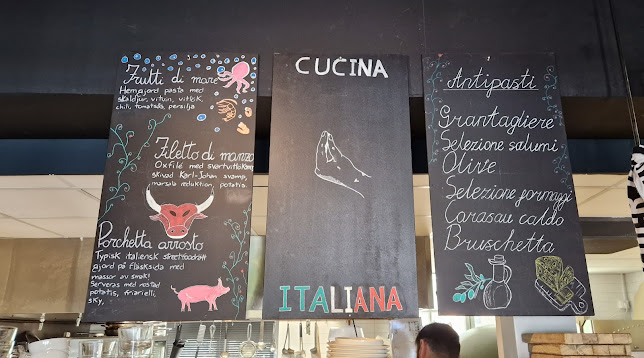 Frutti di mare
Hemgjord pasta med
skaldjur, vitvin, vitlök,
chili, tomatsås, persilja
Filetto di manzo
Oxfilé med svartvitlökspure
skivad Karl-Johan svamp,
marsala reduktion, potatis.
Porchetta arrosto
Typisk italiensk streetfoodrätt
gjord på fläsksida med
massor av smak!
Serveras med rostad
potatis, friarielli,
sky,
CUCINA
ITALIANA
Antipasti
Grantagliere
Selezione salumi
Olive
Selezione formaggi
Carasau caldo
Bruschetta